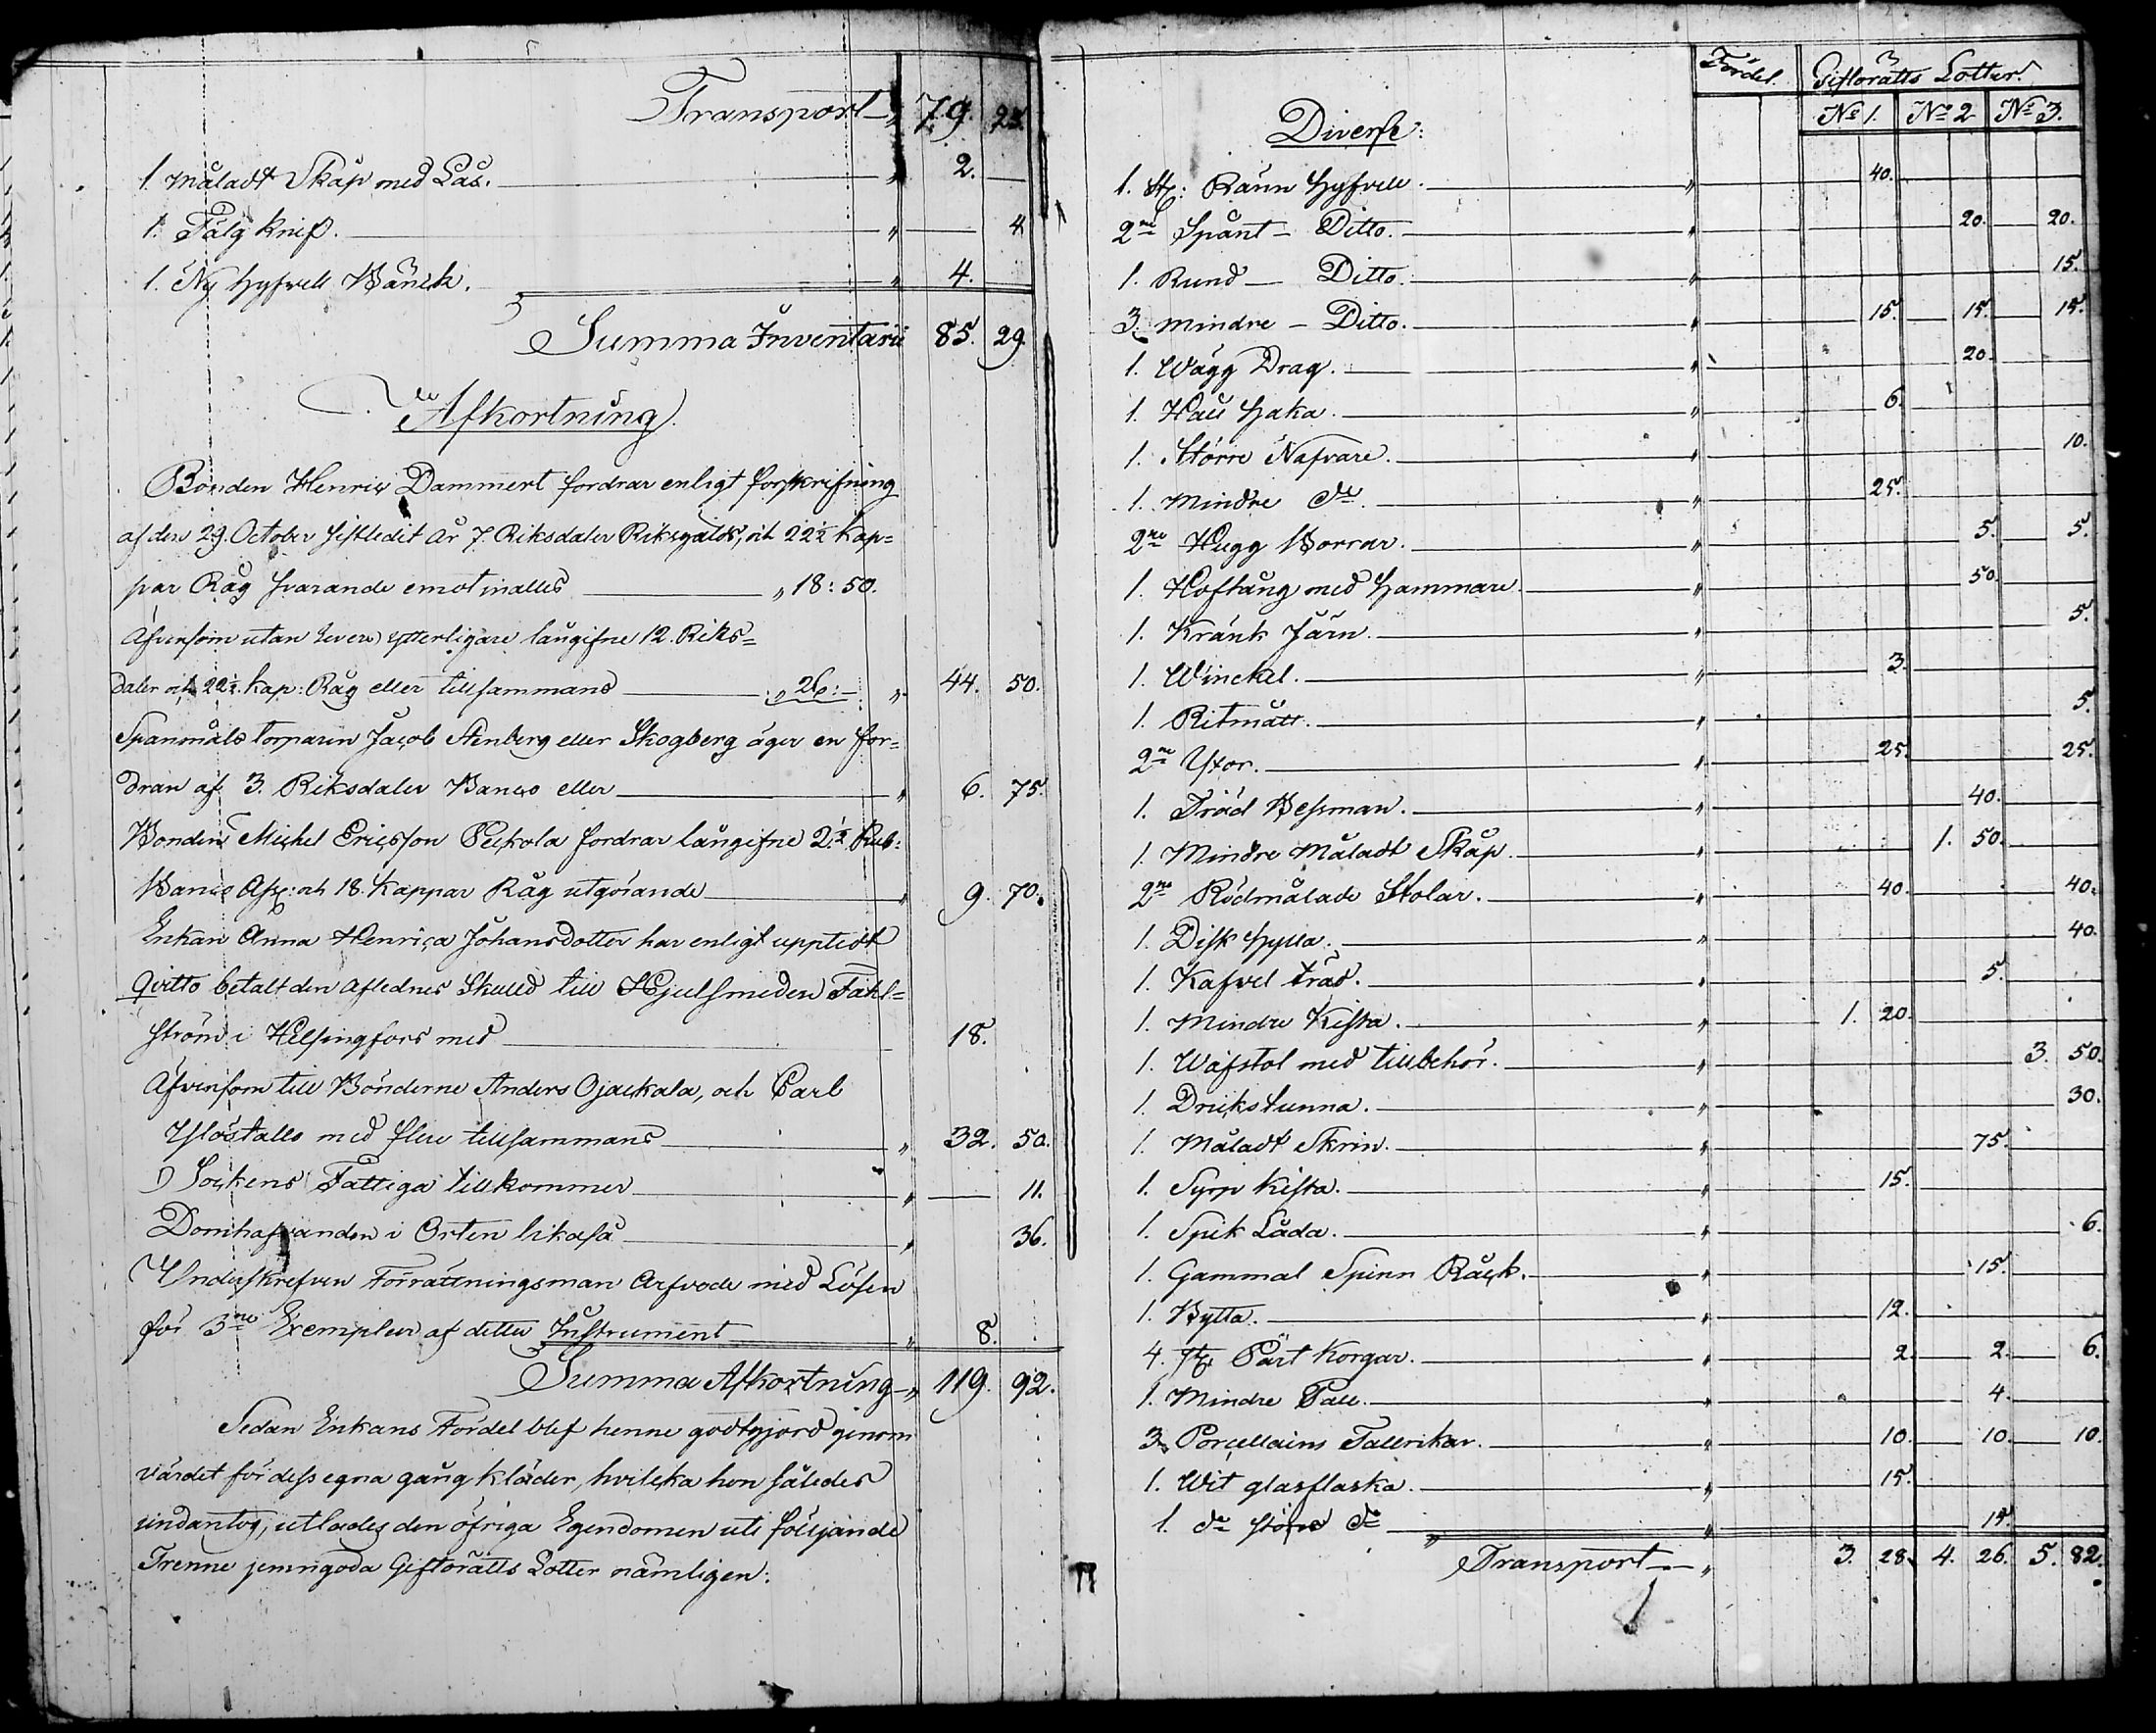 Transport " 79. 25.
1. Måladt Skåp med Lås. " 2. —
1. Tälg knif. " — 4
1. Ny Hyfvell Bänck. " 4.
Summa Inventarii 85. 29.
Afkortning.
Bonden Henric Dammert fordrar enligt förskrifning
af den 29. October sistledit år 7. Riksdaler Riksgälds, och 22½ Kap=
par Råg svarande emot inalles " 18: 50.
Äfvensom utan Revers ytterligare långifne 12. Riks=
daler och 22½. Kap: Råg eller tillsammans " 26:— " 44. 50.
Spanmåls torparen Jacob Stenberg eller Skogberg äger en for=
dran af 3. Riksdaler Banco eller " 6. 75.
Bonden Michel Ericsson Peckola fordrar långifne 2½ Rub:
Banco Ass: och 18. Kappar Råg utgörande " 9. 70.
Enkan Anna Henrica Johansdotter har enligt uppted
Qvitto betalt den Aflednes Skuld till Hjulsmeden Fahl=
ström i Helsingfors med 18.
Äfvensom till Bönderne Anders Ojackala, och Carl
Ylöstalls med flere tillsammans " 32. 50.
Sockens Fattiga tillkommer " — 11.
Domhafvanden i Orten likaså " 36.
Underskrefven Förrättningsman Arfvode med Lösen
för 3ne Exemplar af detta Instrument " 8.
Summa Afkortning " 119. 92.
Sedan Enkans Fördel blef henne godtgjord genom
värdet för dess egna gång kläder, hvilcka hon således
undantog, utlades den öfriga Egendomen uti följande
Trenne jemngoda Giftorätts Lotter nämligen:
Fördel. Giftorätts Lotter.
No 1. No 2 No 3.
Diverse:
1. St: Ränn Hyfvell. " 40.
2ne Spånt — Ditto. " 20. 20.
1. Rund — Ditto. " 15.
3. mindre — Ditto. " 15. 15. 15.
1. Wägg Drag. " 20.
1. Haka. " 6.
1. Större Nafvare. " 10.
1. Mindre do. " 25.
2ne Hugg Borrar. " 5. 5.
1. Hoftång med Hammare. " 50.
1. Kränk Järn. " 5.
1. Winckel. " 3.
1. Ritmått. " 5.
2ne Yxor. " 25. 25.
1. Träd Bessman. " 40.
1. Mindre Måladt Skåp. " 1. 50.
2ne Rödmålade Stolar. " 40. 40.
1. Disk hylla. " 40.
1. Kafvel träd. " 5.
1. Mindre Kista. " 1. 20.
1. Wäfstol med tillbehör. " 3. 50.
1. Drickstunna. " 30.
1. Måladt Skrin. " 75.
1. Syrp Kista. " 15.
1. Spik Låda. " 6.
1. Gammal Spinn Råck. " 15.
1. Bytta. " 12.
4. St Pärt Korgar. " 2. 2. 6.
1. Mindre Pall. " 4.
3. Porcellains Tallrikar. " 10. 10. 10.
1. Wit glasflaska. " 15.
1. do större do " 15.
Transport — " 3. 28. 4. 26. 5. 82.